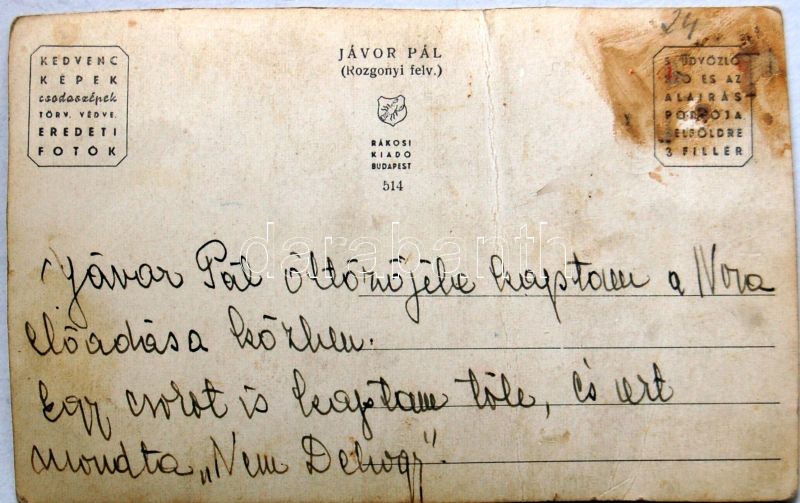 KEDVENC
KÉPEK
csodaszépek
TÖRV. VÉDVE.
EREDETI
FOTÓK
JÁVOR PÁL
(Rozgonyi felv.)
RÁKOSI
KIADÓ
BUDAPEST
514
24
5 ÜDVÖZLŐ
SZÓ ÉS AZ
ALÁIRÁS
PORTÓJA
BELFÖLDRE
3 FILLÉR
darabanth
Jávor Pál öltözőjébe kaptam a Nora
előadása közben.
Egy csokot is kaptam tőle, és ezt
mondta „Nem Dehogy".